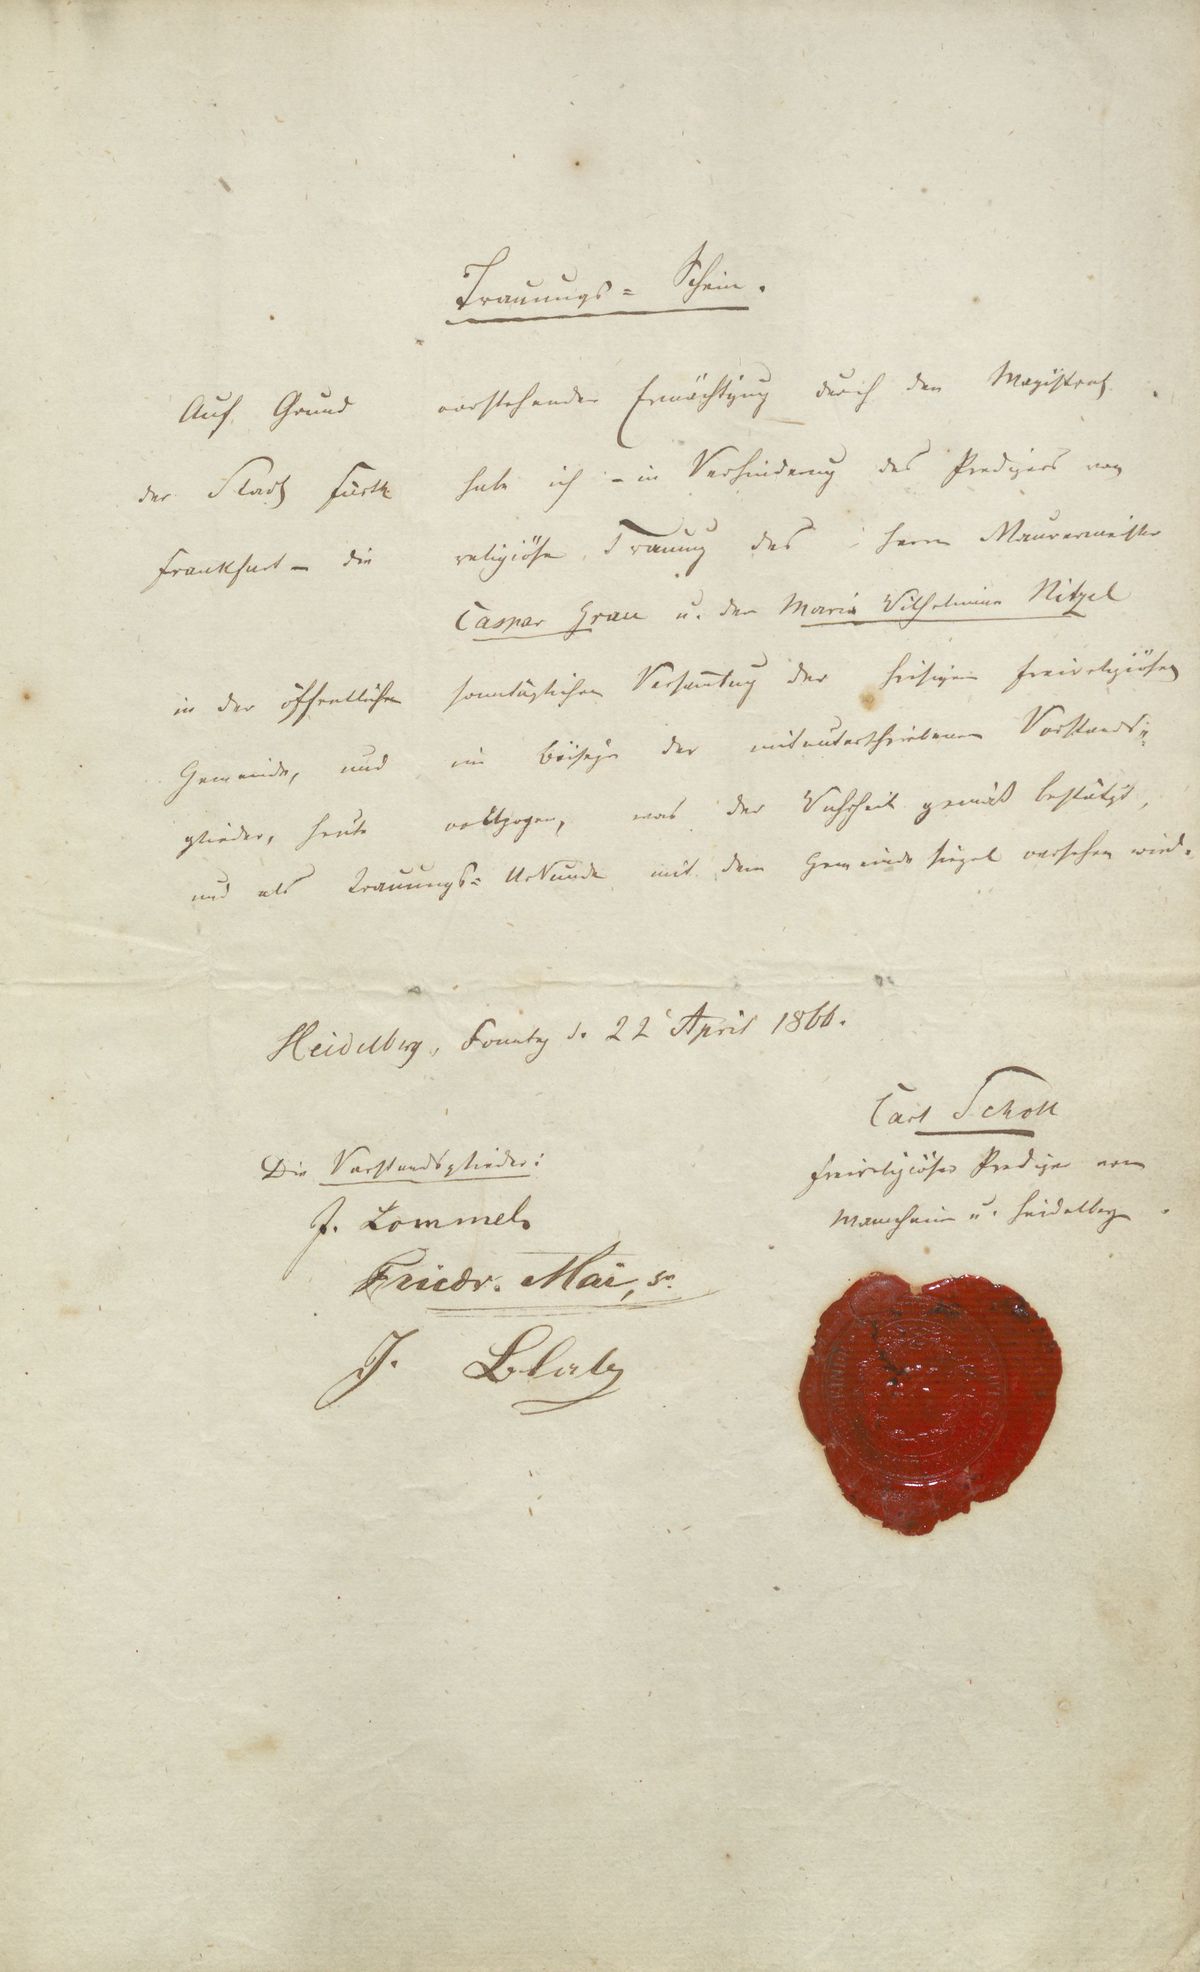 Trauungs= Schein.
Auf Grund vorstehender Ermächtigung durch den Magistrat
der Stadt Fürth habe ich – in Verhinderung des Predigers von
Frankfurt – die religiöse Trauung des Herrn Maurermeister
Caspar Grau u. der Maria Wilhelmine Nitzel
in der öffentlichen sonntäglichen Versamlung der hiesigen freireligiösen
Gemeinde, und im Beisein der mitunterschriebenen Vorstands=
glieder, heute vollzogen, was der Wahrheit gemäß bestätigt,
und als Trauungs= Urkunde mit dem Gemeindesiegel versehen wird.
Heidelberg, Sonntag d. 22 April 1866.
Carl Scholl
freireligiöser Prediger von
Mannheim u. Heidelberg.
Die Vorstandsglieder:
J. Lommel
Friedr. Mai, sr.
J.